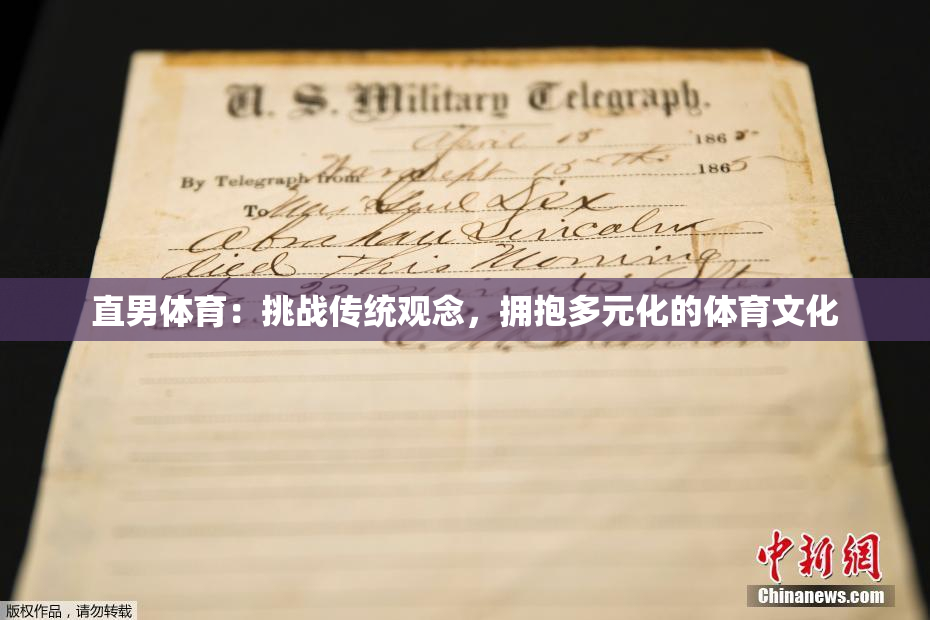 U. S. Military Telegraph.
April 15 1865
By Telegraph from War Dept 15th 1865
To Maj Genl Dix
Abraham Lincoln
died This Morning
22 minutes after
直男体育：挑战传统观念，拥抱多元化的体育文化
E. M. Stanton
中新网
Chinanews.com
版权作品，请勿转载